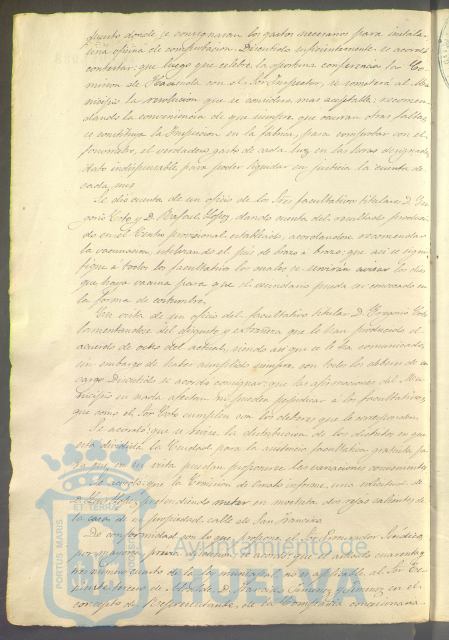 puesto donde se consignaran los gastos necesarios para instalar
una oficina de comprobacion. Discutido suficientemente se acordó
contestar: que luego que celebre la oportuna conferencia la Co-
mision de Hacienda con el Sor Inspector, se someterá al Mu-
nicipio la resolucion que se considere mas aceptable; recomen-
dando la conveniencia de que siempre que ocurran otras faltas,
se constituya la Inspeccion en la fábrica, para comprobar con el
fotometro, el verdadero gasto de cada luz en las horas designadas,
dato indispensable, para poder liquidar en justicia la cuenta de
cada mes.
Se dió cuenta de un oficio de los Sres facultativos titulares D.
y D. Rafael Lopez, dando cuenta del resultado produci-
do en el Centro provisional establecido, acordandose recomendar
la vacunacion, de brazo a brazo; que asi se
á todos los facultativos los cuales se servirán avisar los dias
que haya vacuna para que el vecindario pueda ser convocado en
la forma de costumbre.
En vista de un oficio del facultativo titular D.
lamentandose del disgusto y extrañeza que le han producido el
acuerdo de ocho del actual, siendo asi que se le ha comunicado,
sin embargo de haber cumplido siempre con todos los deberes de su
cargo. Discutido se acordó consignar: que las afirmaciones del Mu-
nicipio en nada afectan ni pueden perjudicar á los facultativos,
que como el Sor cumplen con los deberes que le corresponden.
Se acordó: que se revise la distribucion de los distritos en que
está dividida la Ciudad para la asistencia facultativa gratuita,
en su vista puedan proponerse las variaciones convenientes.
Se acordó: que la Comision de Ornato informe, una solicitud de
D. pretendiendo meter en mocheta dos rejas salientes de
la casa de su propiedad calle de San Francisco.
De conformidad con lo que propone el Sor Procurador Síndico,
por mayoria, previa discusion, se acordó: que el articulo cuarenta y
tres número cuarto de la ley municipal, no es aplicable al Sor Te-
niente tercero de Alcalde, D. Francisco Jimenez y Jimenez en el
concepto de Representante, de la Compañia concesionaria
PORTUS MARIS
ET TERRAE
Ayuntamiento de
HUELVA